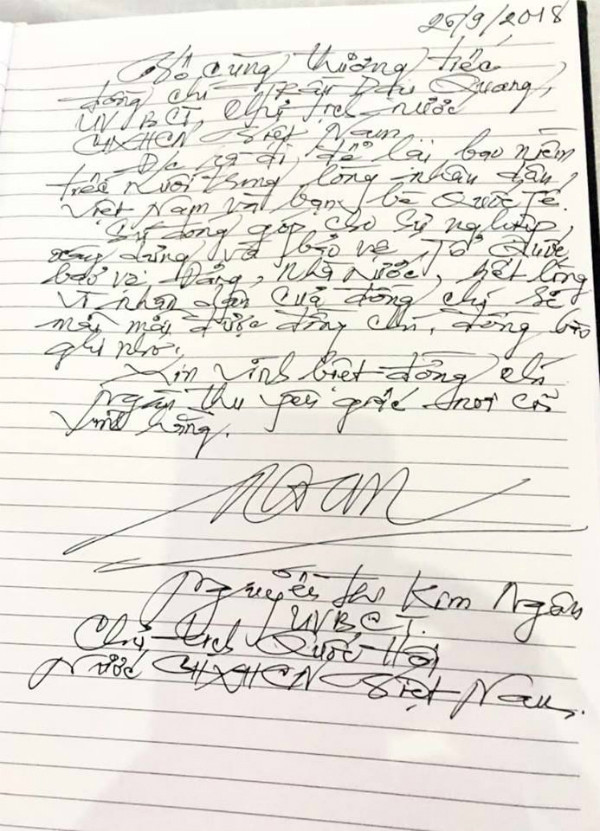 26/9/2018
Vô cùng thương tiếc
đồng chí Trần Đại Quang,
UV BCT, Chủ tịch nước
CHXHCN Việt Nam
Đ/c ra đi, để lại bao niềm
tiếc nuối trong lòng nhân dân,
Việt Nam và bạn bè Quốc tế.
Sự đóng góp cho sự nghiệp,
xây dựng và bảo vệ Tổ Quốc,
bảo vệ Đảng, Nhà nước, hết lòng
vì nhân dân của đồng chí sẽ
mãi mãi được đồng chí, đồng bào
ghi nhớ.
Xin vĩnh biệt đồng chí
ngàn thu yên giấc nơi cõi
vĩnh hằng.
Ngân
Nguyễn Thị Kim Ngân
UVBCT.
Chủ tịch Quốc Hội
Nước CHXHCN Việt Nam.